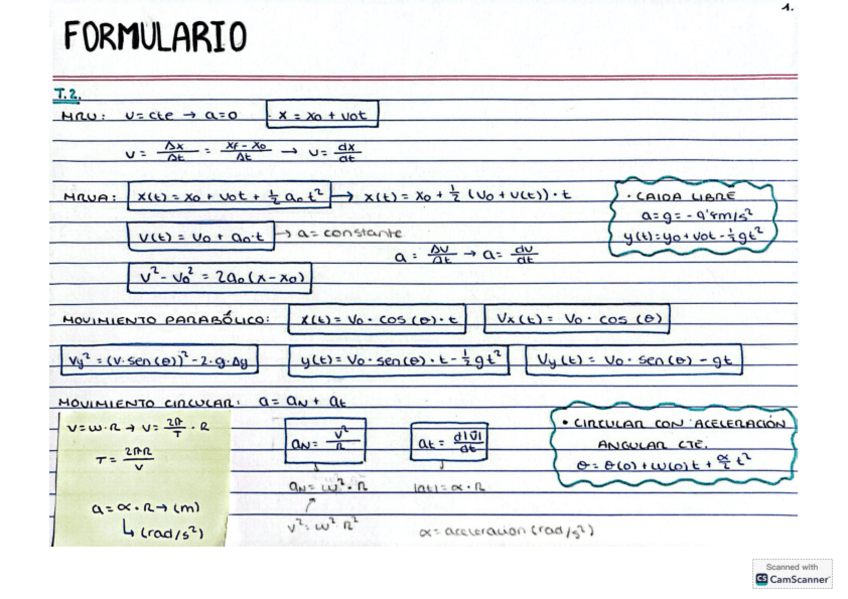 1.
FORMULARIO
T.2.
MRU: v = cte → a=0 x = x₀ + v₀t
v = Δx/Δt = (xf - x₀)/Δt → v = dx/dt
MRUA: x(t) = x₀ + v₀t + ½ a₀t² → x(t) = x₀ + ½ (v₀ + v(t)) · t
v(t) = v₀ + a₀·t → a = constante
a = Δv/Δt → a = dv/dt
v² - v₀² = 2a₀(x - x₀)
· CAIDA LIBRE
a = g = - 9'8 m/s²
y(t) = y₀ + v₀t - ½gt²
MOVIMIENTO PARABÓLICO: x(t) = v₀ · cos (θ) · t Vx(t) = V₀ · cos (θ)
Vy² = (v·sen(θ))² - 2·g·Δy y(t) = V₀ · sen(θ) · t - ½gt² Vy(t) = V₀ · sen(θ) - gt
MOVIMIENTO CIRCULAR: a = aN + at
v = ω·R → v = 2π/T · R
T = 2πR/v
a = α · R → (m)
↳ (rad/s²)
aN = v²/R at = d|v⃗|/dt
aN = ω² · R |at| = α · R
v² = ω² R² α = aceleracion (rad/s²)
• CIRCULAR CON ACELERACIÓN
ANGULAR CTE.
θ = θ(0) + ω(0)t + α/2 t²
Scanned with
CS CamScanner